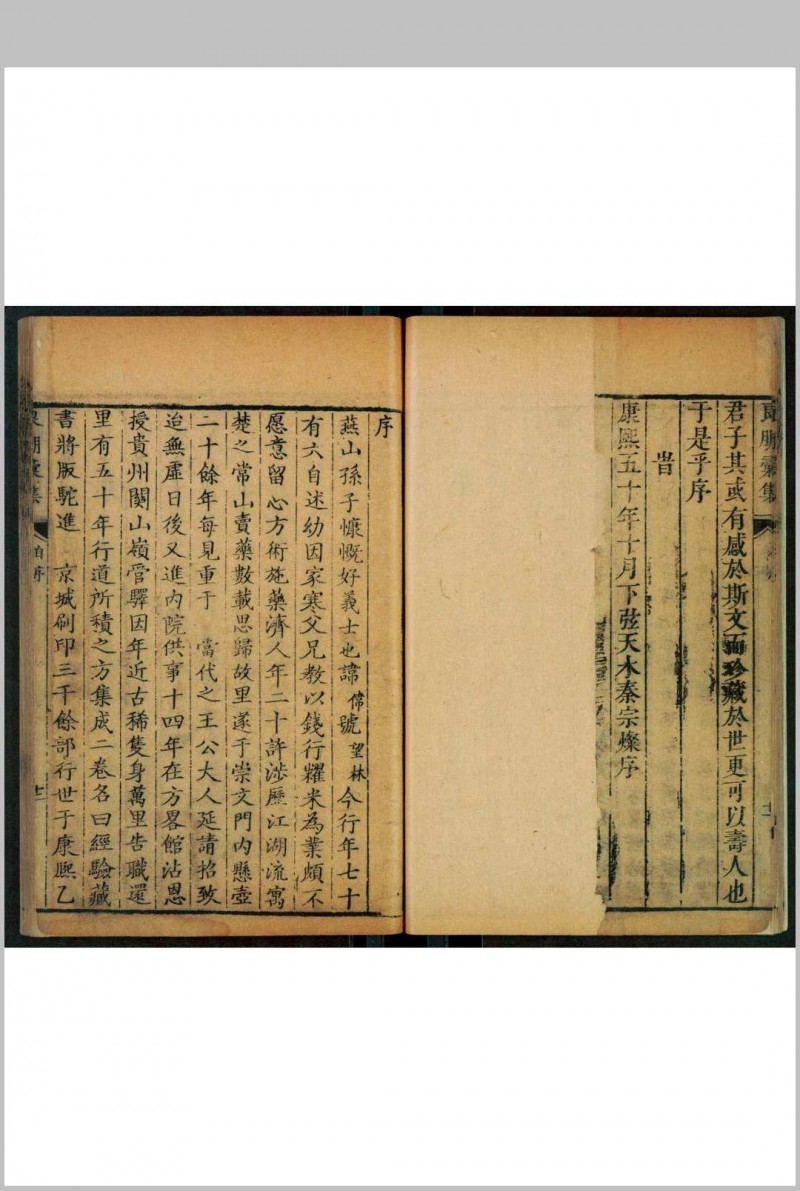 良朋彙集
君子其或有感於斯文而珍藏於世更可以壽人也
于是乎序
旹
康熙五十年十月下弦天水秦宗燦序
序
燕山孫子慷慨好義士也諱偉號望林今行年七十
有六自述幼因家寒父兄教以錢行糴米為業頗不
愿意留心方術施藥濟人年二十許渉歷江湖流寓
楚之常山賣藥數載思歸故里遂于崇文門内懸壺
二十餘年每見重于 當代之王公大人延請招致
迨無虛日後又進内院供事十四年在方畧館沾恩
授貴州關山嶺管驛因年近古稀隻身萬里告職還
里有五十年行道所積之方集成二卷名曰經驗藏
書將版駝進 京城刷印三千餘部行世于康熈乙
良朋彙集
自序